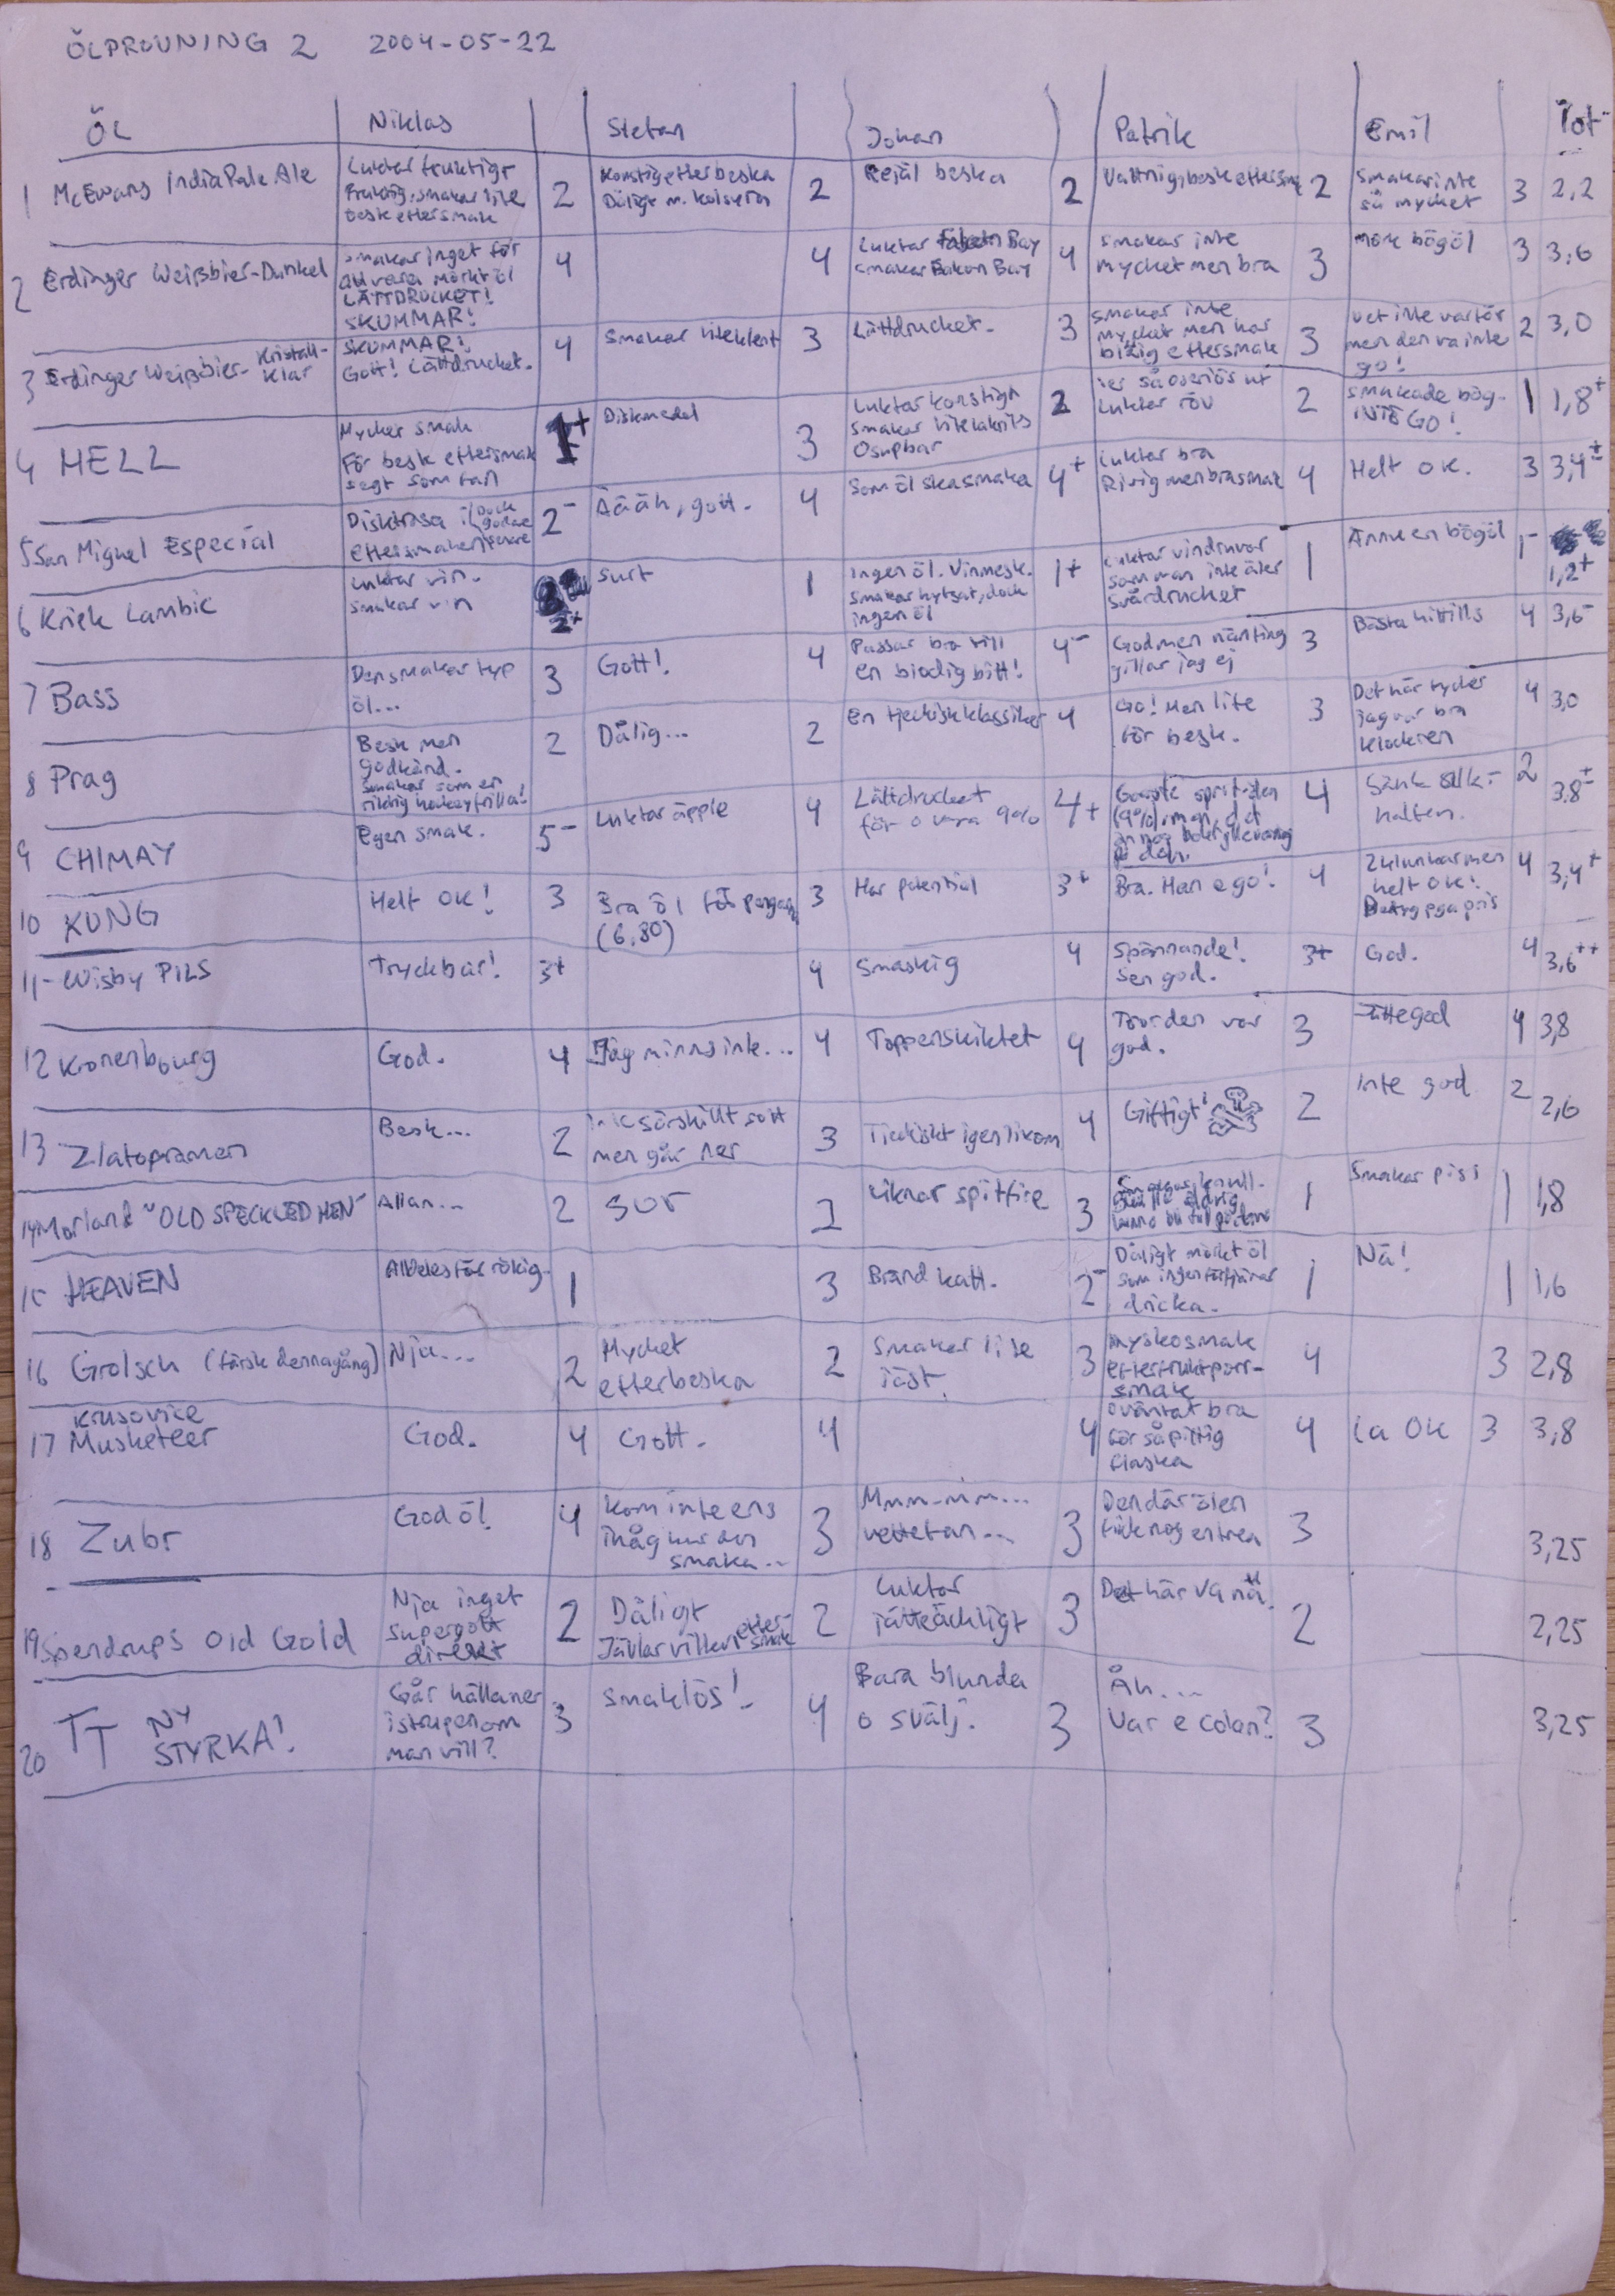 ÖLPROVNING 2 2004-05-22
ÖL Niklas Stefan Johan Patrik Emil Tot
1 McEwans India Pale Ale
Luktar fruktigt
Fruktig, smakar lite
besk eftersmak
2
Konstig efterbeska
Dåligt m. kolsyra
2
Rejäl beska
2
Vattnig, besk eftersmak
2
Smakar inte
så mycket
3
2,2
2 Erdinger Weißbier-Dunkel
Smakar inget för
att vara mörkt öl
LÄTTDRUCKET!
SKUMMAR!
4
4
Luktar Bay
smakar Bay
4
smakar inte
mycket men bra
3
Mörk bögöl
3
3,6
3 Erdinger Weißbier-Kristall-
klar
SKUMMAR!
Gott! Lättdrucket.
4
Smakar lite klent
3
Lättdrucket.
3
smakar inte
mycket men har
bizig eftersmak
3
Vet inte varför
men den va inte
go!
2
3,0
4 HELL
Mycket smak
För besk eftersmak
segt som fan
1+
Diskmedel
3
Luktar konstigt
smakar lite lakrits
Osupbar
2
ser så oseriös ut
Luktar röv
2
smakade bög-
INTE GO!
1
1,8+
5 San Miguel Especial
Disktrasa i
eftersmaken
Dock
godare
2-
Äääh, gott.
4
Som öl ska smaka
4+
Luktar bra
Rivig men bra smak
4
Helt ok.
3
3,4±
6 Kriek Lambic
Luktar vin.
smakar vin
2+
Surt
1
Ingen öl. Vinmesk.
smakar hyfsat, dock
ingen öl
1+
Luktar vindruvor
som man inte äter
Svårdrucket
1
Ännu en bögöl
1-
1,2+
7 Bass
Den smakar typ
öl...
3
Gott!
4
Passar bra till
en blodig bitt!
4-
God men nånting
gillar jag ej
3
Bästa hittills
4
3,6-
8 Prag
Besk men
godkänd.
Smakar som en
riktig hockeyfrilla!
2
Dålig...
2
En tjeckisk klassiker
4
Go! Men lite
för besk.
3
Det här tycker
jag var bra
klockren
4
3,0
9 CHIMAY
Egen smak.
5-
Luktar äpple
4
Lättdrucket
för o vara 9%
4+
4
Sänk alk-
halten.
2
3,8±
10 KUNG
Helt OK!
3
Bra öl för pengarna
(6,80)
3
Har potential
3+
Bra. Han e go!
4
2 klunkar men
helt OK!
pga pris
4
3,4+
11 - Wisby PILS
Tryckbar!
3+
4
Smaskig
4
Spännande!
Sen god.
3+
God.
4
3,6++
12 Kronenbourg
God.
4
Jag minns inte...
4
Toppenskiktet
4
Torr den var
god.
3
Jättegod
4
3,8
13 Zlatopramen
Besk...
2
Inte särskillt gott
men går ner
3
Tjeckiskt igen likom
4
Giftigt!
2
Inte god
2
2,6
14 Morland "OLD SPECKLED HEN"
Allan...
2
SUR
2
Liknar spitfire
3
1
Smakar piss
1
1,8
15 HEAVEN
Alldeles för rökig.
1
3
Bränd katt.
2-
Dåligt mörkt öl
som ingen förtjänar
dricka.
1
Nä!
1
1,6
16 Grolsch (färsk denna gång)
Nja...
2
Mycket
efterbeska
2
Smakar lite
jäst.
3
myskosmak
efterfruktporr-
smak
4
3
2,8
17 Krusovice
Musketeer
God.
4
Gott.
4
4
Oväntat bra
för så pittig
flaska
4
Ca OK
3
3,8
18 Zubr
God öl.
4
Kom inte ens
ihåg hur den
smaka...
3
Mmm-mm...
vettefan...
3
Den där ölen
fick nog en trea
3
3,25
19 Spendrups Old Gold
Nja inget
supergott
direkt
2
Dåligt
Jävlar vilken efter-
smak
2
Luktar
jätteäckligt
3
Det här va nä.
2
2,25
20 TT NY
STYRKA!
Går hälla ner
i strupen om
man vill?
3
Smaklös!
4
Bara blunda
o svälj.
3
Åh...
Var e colan?
3
3,25